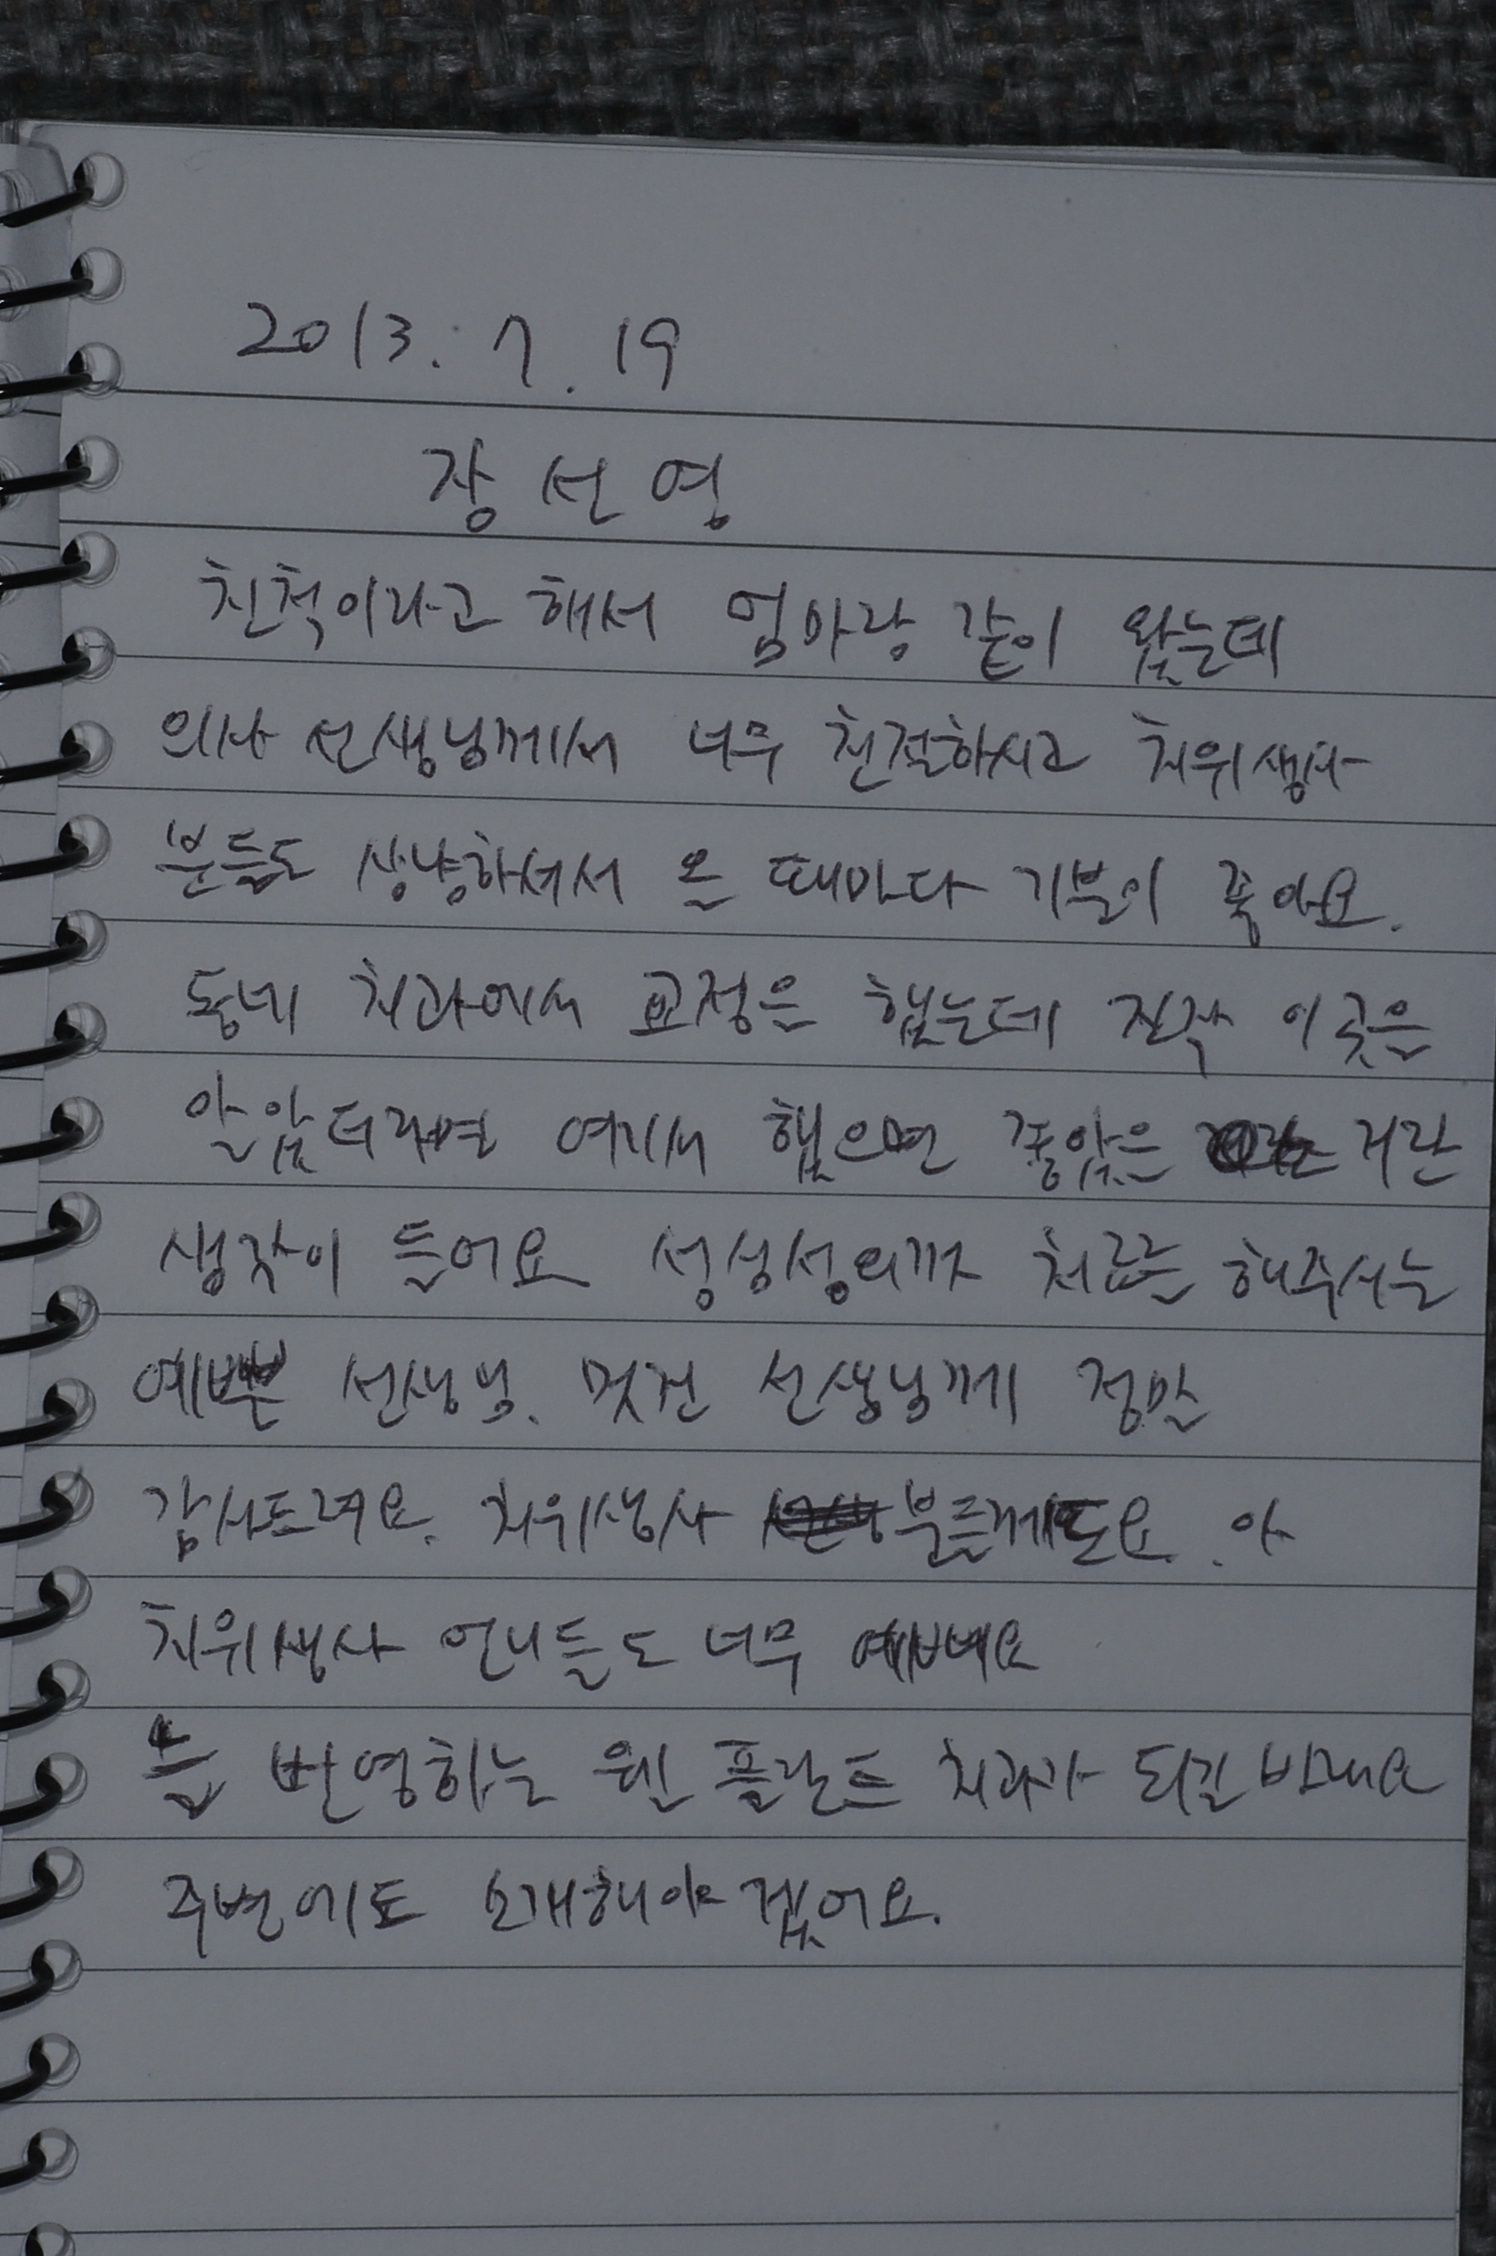 2013. 7. 19
장선영
친척이라고 해서 엄마랑 같이 왔는데
의사 선생님께서 너무 친절하시고 치위생사
분들도 상냥하셔서 올 때마다 기분이 좋아요.
동네 치과에서 교정을 했는데 진작 이곳을
알았더라면 여기서 했으면 좋았을 거란
생각이 들어요 성심성의껏 치료를 해주시는
예쁜 선생님. 멋진 선생님께 정말
감사드려요. 치위생사 분들께도요. 아
치위생사 언니들도 너무 예쁘네요
늘 번영하는 웰 플란트 치과가 되길 바래요
주변에도 소개해야겠어요.